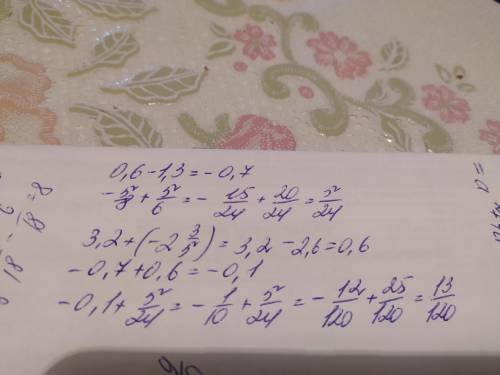 0,6-1,3=-0,7
-5/8+5/6=-15/24+20/24=5/24
3,2+(-2 3/5)=3,2-2,6=0,6
-0,7+0,6=-0,1
-0,1+5/24=-1/10+5/24=-12/120+25/120=13/120